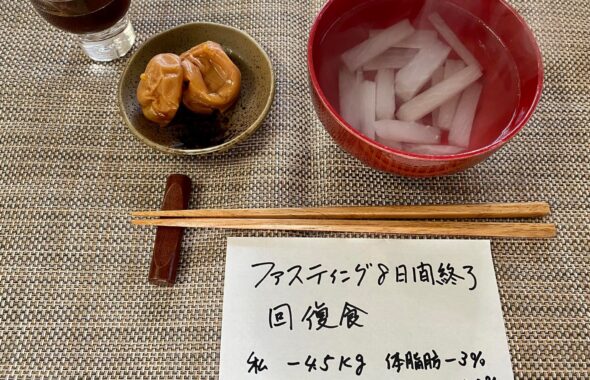 ファスティング8日間終了
回復食
私 -4.5kg 体脂肪-3%